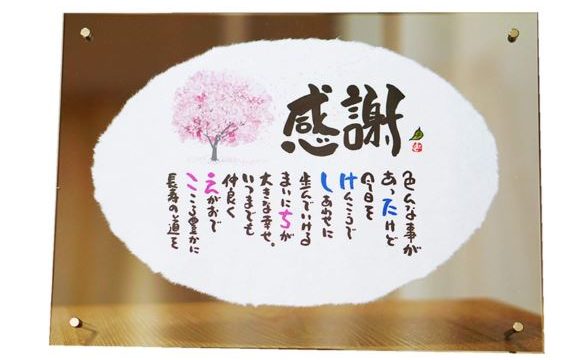 感謝
色んな事が
あったけど
今日を
けんこうで
しあわせに
歩んでいける
まいにちが
大きな幸せ。
いつまでも
仲良く
えがおで
こころ豊かに
長寿の道を